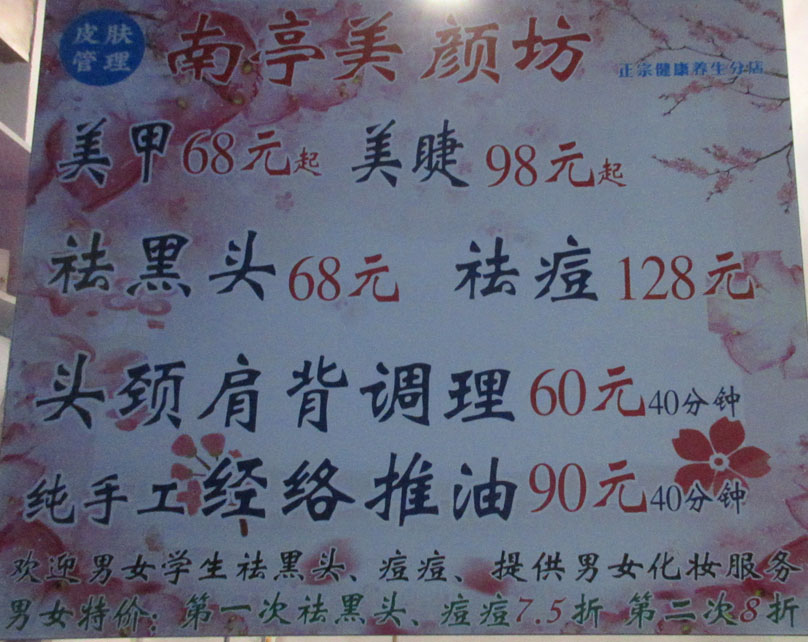 皮肤管理
南亭美颜坊
正宗健康养生分店
美甲68元起 美睫98元起
祛黑头68元 祛痘128元
头颈肩背调理60元40分钟
纯手工经络推油90元40分钟
欢迎男女学生祛黑头、痘痘、提供男女化妆服务
男女特价：第一次祛黑头、痘痘7.5折 第二次8折